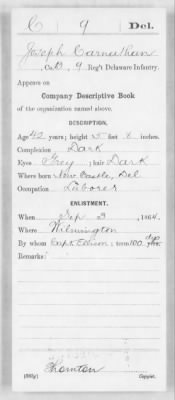 C 9 Del.
Joseph Carnathan
Co. D, 9 Reg't Delaware Infantry.
Appears on
Company Descriptive Book
of the organization named above.
DESCRIPTION.
Age 42 years; height 5 feet 8 inches.
Complexion Dark
Eyes Grey; hair Dark
Where born New Castle, Del
Occupation Laborer
ENLISTMENT.
When Sep 3, 1864.
Where Wilmington
By whom Capt. Ellison; term 100 days
Remarks:
Thornton
Copyist.